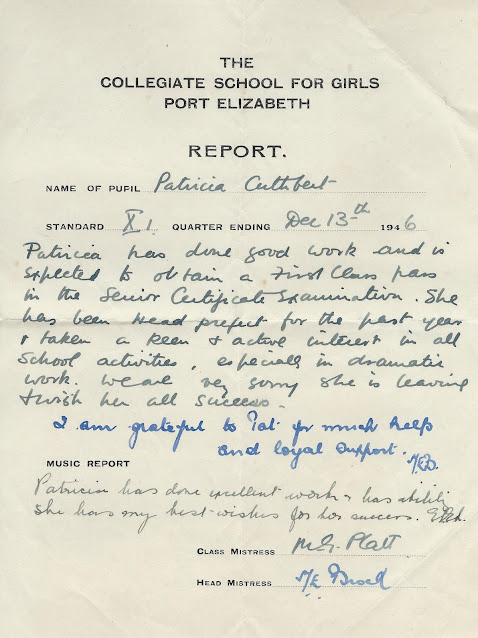 THE
COLLEGIATE SCHOOL FOR GIRLS
PORT ELIZABETH
REPORT.
NAME OF PUPIL Patricia Cuthbert
STANDARD X I QUARTER ENDING Dec 13th 1946
Patricia has done good work and is
expected to obtain a First Class pass
in the Senior Certificate Examination. She
has been Head prefect for the past year
& taken a keen & active interest in all
School activities, especially in dramatic
work. We are very sorry she is leaving
& wish her all success.
I am grateful to Pat for much help
and loyal support.
M.E.B.
MUSIC REPORT
Patricia has done excellent work & has ability
She has my best wishes for her success.
CLASS MISTRESS M.G. Platt
HEAD MISTRESS M E Brock